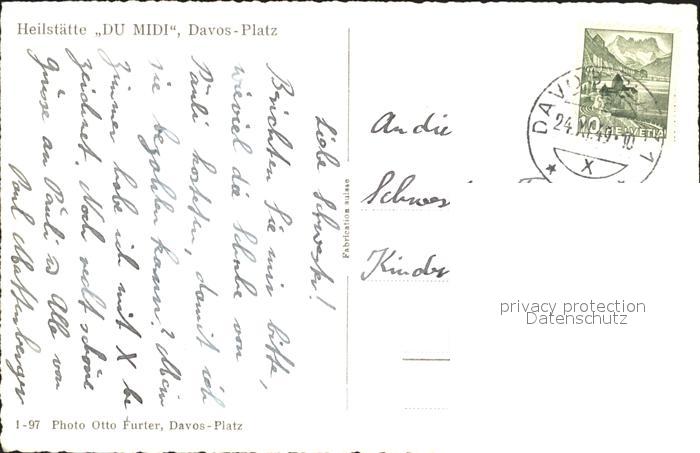 Heilstätte „DU MIDI“, Davos-Platz
Liebe Schwester!
Berichten Sie mir bitte,
wieviel die Schuhe von
Pauli kosten, damit ich
sie bezahlen kann? Mein
Zimmer habe ich mit X be
zeichnet. Noch recht schöne
Grüsse an Pauli u Alle von
Paul
1-97 Photo Otto Furter, Davos-Platz
Fabrication suisse
An die
Schwes
Kinder
DAVOS
24. 49-10
X
1
10 HELVETIA
privacy protection
Datenschutz